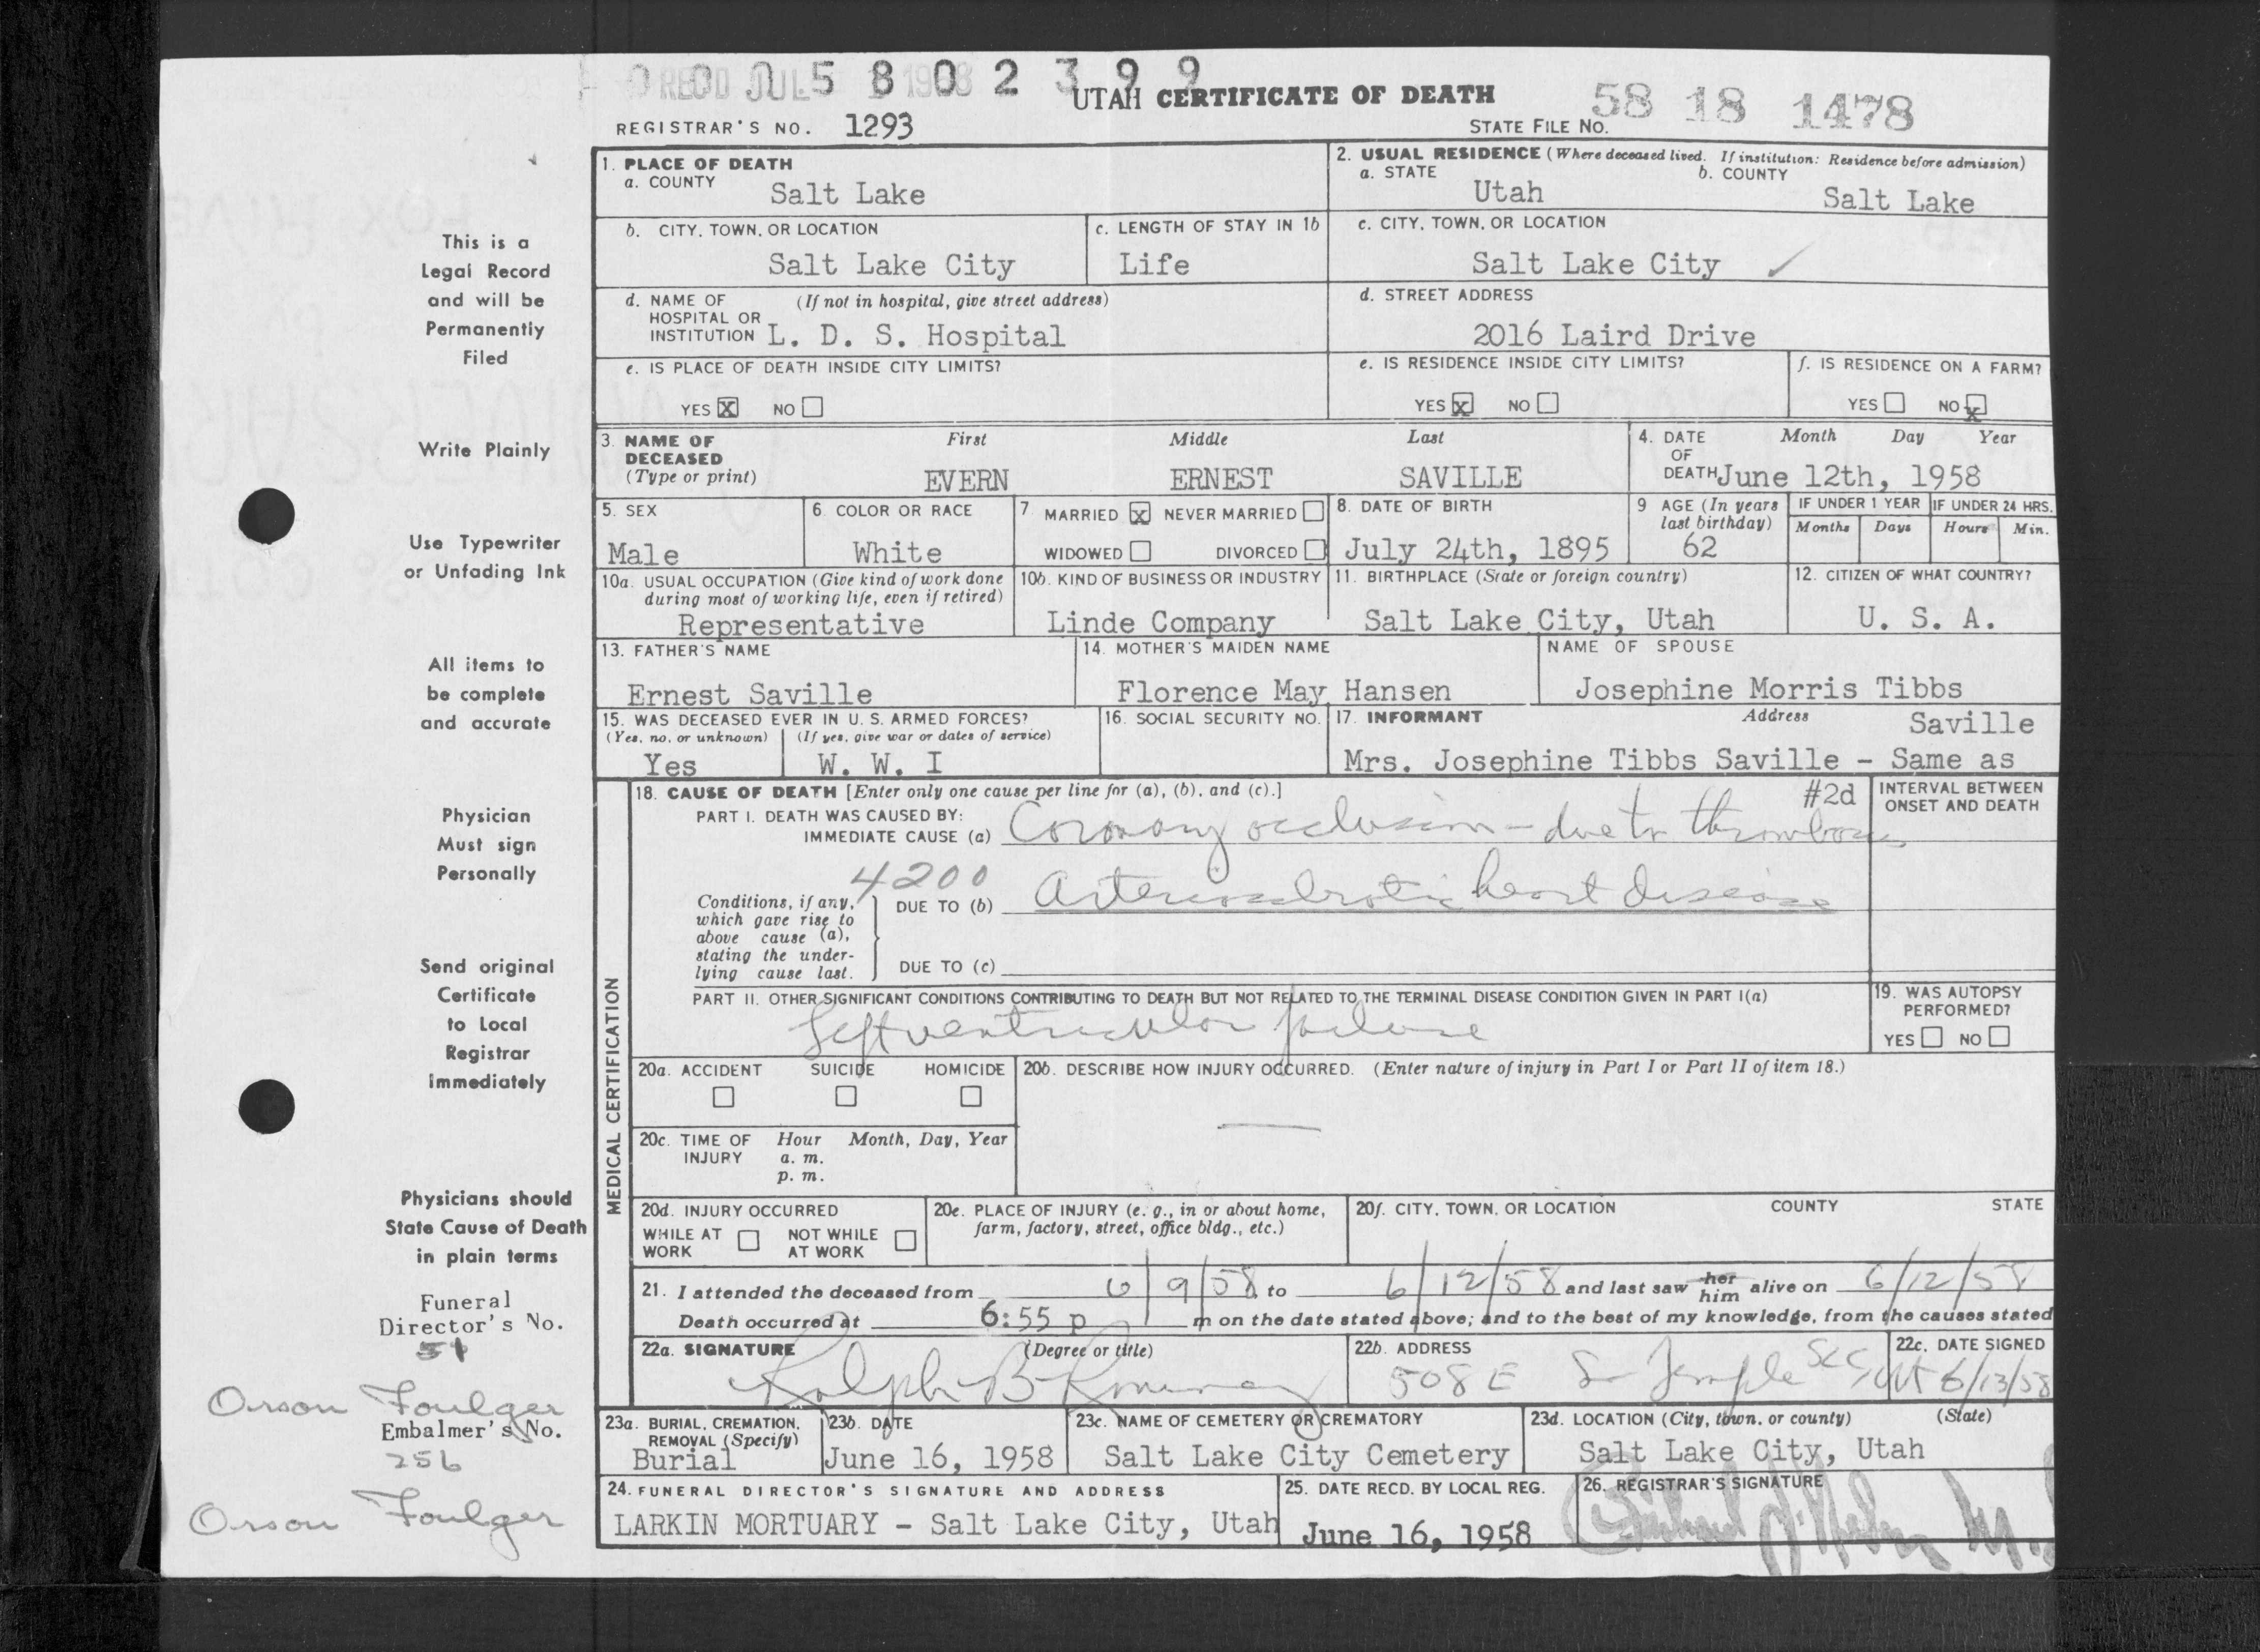 RECD JUL 1 1958
0 0 0 5 8 0 2 3 9 9
UTAH CERTIFICATE OF DEATH
58 18 1478
REGISTRAR'S NO. 1293
STATE FILE NO.
1. PLACE OF DEATH
a. COUNTY
Salt Lake
2. USUAL RESIDENCE (Where deceased lived. If institution: Residence before admission)
a. STATE b. COUNTY
Utah Salt Lake
b. CITY, TOWN, OR LOCATION
Salt Lake City
c. LENGTH OF STAY IN 1b
Life
c. CITY, TOWN, OR LOCATION
Salt Lake City
d. NAME OF (If not in hospital, give street address)
HOSPITAL OR
INSTITUTION L. D. S. Hospital
d. STREET ADDRESS
2016 Laird Drive
e. IS PLACE OF DEATH INSIDE CITY LIMITS?
YES X NO
e. IS RESIDENCE INSIDE CITY LIMITS?
YES X NO
f. IS RESIDENCE ON A FARM?
YES NO X
3. NAME OF First Middle Last
DECEASED
(Type or print) EVERN ERNEST SAVILLE
4. DATE Month Day Year
OF
DEATH June 12th, 1958
5. SEX
Male
6. COLOR OR RACE
White
7. MARRIED X NEVER MARRIED
WIDOWED DIVORCED
8. DATE OF BIRTH
July 24th, 1895
9 AGE (In years
last birthday)
62
IF UNDER 1 YEAR
Months Days
IF UNDER 24 HRS.
Hours Min.
10a. USUAL OCCUPATION (Give kind of work done
during most of working life, even if retired)
Representative
10b. KIND OF BUSINESS OR INDUSTRY
Linde Company
11. BIRTHPLACE (State or foreign country)
Salt Lake City, Utah
12. CITIZEN OF WHAT COUNTRY?
U. S. A.
13. FATHER'S NAME
Ernest Saville
14. MOTHER'S MAIDEN NAME
Florence May Hansen
NAME OF SPOUSE
Josephine Morris Tibbs
Saville
15. WAS DECEASED EVER IN U. S. ARMED FORCES?
(Yes, no, or unknown) (If yes, give war or dates of service)
Yes W. W. I
16. SOCIAL SECURITY NO.
17. INFORMANT Address
Mrs. Josephine Tibbs Saville - Same as
#2d
MEDICAL CERTIFICATION
18. CAUSE OF DEATH [Enter only one cause per line for (a), (b), and (c).]
INTERVAL BETWEEN
ONSET AND DEATH
PART I. DEATH WAS CAUSED BY:
IMMEDIATE CAUSE (a) Coronary occlusion - due to thrombosis
4200
Conditions, if any,
which gave rise to
above cause (a),
stating the under-
lying cause last.
DUE TO (b) Arteriosclerotic heart disease
DUE TO (c)
PART II. OTHER SIGNIFICANT CONDITIONS CONTRIBUTING TO DEATH BUT NOT RELATED TO THE TERMINAL DISEASE CONDITION GIVEN IN PART I(a)
Left ventricular failure
19. WAS AUTOPSY
PERFORMED?
YES NO
20a. ACCIDENT SUICIDE HOMICIDE
20b. DESCRIBE HOW INJURY OCCURRED. (Enter nature of injury in Part I or Part II of item 18.)
20c. TIME OF Hour Month, Day, Year
INJURY a. m.
p. m.
20d. INJURY OCCURRED
WHILE AT NOT WHILE
WORK AT WORK
20e. PLACE OF INJURY (e. g., in or about home,
farm, factory, street, office bldg., etc.)
20f. CITY, TOWN, OR LOCATION COUNTY STATE
21. I attended the deceased from 6/9/58 to 6/12/58 and last saw her him alive on 6/12/58
Death occurred at 6:55 p m on the date stated above; and to the best of my knowledge, from the causes stated
22a. SIGNATURE (Degree or title)
Ralph B Romney
22b. ADDRESS
508 E So Temple SLC, Ut
22c. DATE SIGNED
6/13/58
23a. BURIAL, CREMATION,
REMOVAL (Specify)
Burial
23b. DATE
June 16, 1958
23c. NAME OF CEMETERY OR CREMATORY
Salt Lake City Cemetery
23d. LOCATION (City, town, or county) (State)
Salt Lake City, Utah
24. FUNERAL DIRECTOR'S SIGNATURE AND ADDRESS
LARKIN MORTUARY - Salt Lake City, Utah
25. DATE RECD. BY LOCAL REG.
June 16, 1958
26. REGISTRAR'S SIGNATURE
This is a
Legal Record
and will be
Permanently
Filed
Write Plainly
Use Typewriter
or Unfading Ink
All items to
be complete
and accurate
Physician
Must sign
Personally
Send original
Certificate
to Local
Registrar
immediately
Physicians should
State Cause of Death
in plain terms
Funeral
Director's No.
51
Orson Foulger
Embalmer's No.
256
Orson Foulger